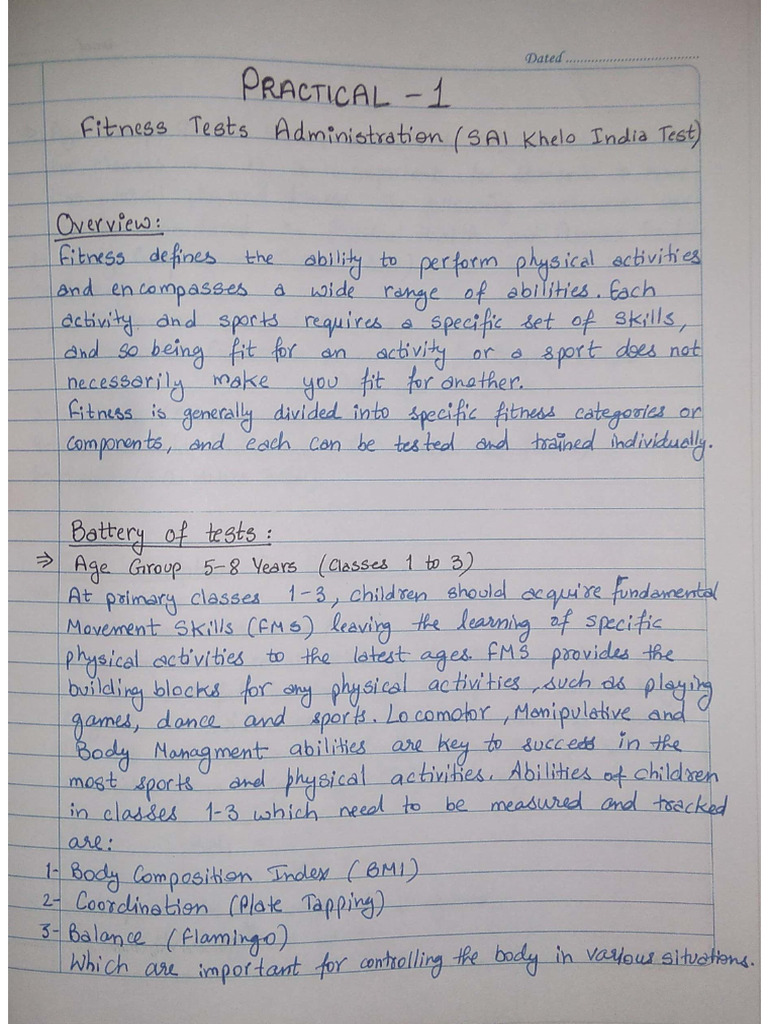 Dated
PRACTICAL - 1
Fitness Tests Administration (SAI Khelo India Test)
Overview:
Fitness defines the ability to perform physical activities
and encompasses a wide range of abilities. Each
activity and sports requires a specific set of skills,
and so being fit for an activity or a sport does not
necessarily make you fit for another.
Fitness is generally divided into specific fitness categories or
components, and each can be tested and trained individually.
Battery of tests:
⇒ Age Group 5-8 Years (Classes 1 to 3)
At primary classes 1-3, children should acquire Fundamental
Movement Skills (FMS) leaving the learning of specific
physical activities to the latest ages. FMS provides the
building blocks for any physical activities, such as playing
games, dance and sports. Locomotor, Manipulative and
Body Managment abilities are key to success in the
most sports and physical activities. Abilities of children
in classes 1-3 which need to be measured and tracked
are:
1- Body Composition Index (BMI)
2- Coordination (Plate Tapping)
3- Balance (Flamingo)
Which are important for controlling the body in various situations.